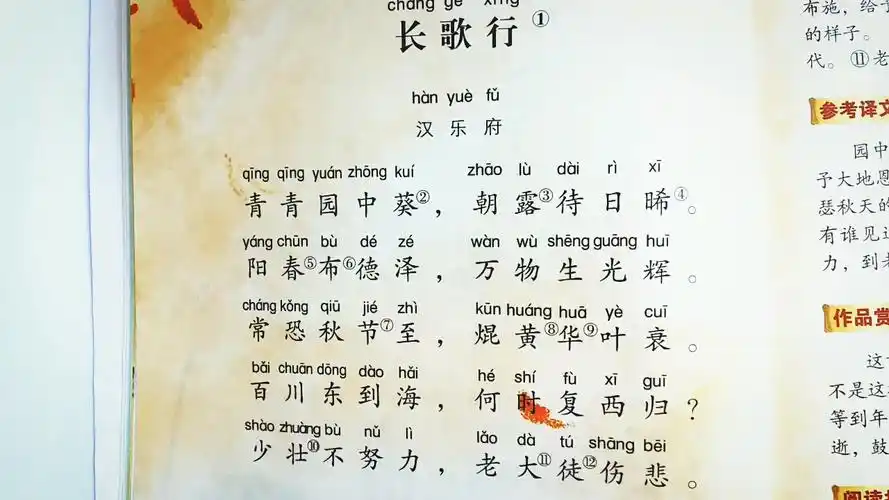 cháng gē xíng
长歌行①
hàn yuè fǔ
汉乐府
qīng qīng yuán zhōng kuí zhāo lù dài rì xī
青青园中葵②，朝露③待日晞④。
yáng chūn bù dé zé wàn wù shēng guāng huī
阳春⑤布⑥德泽，万物生光辉。
cháng kǒng qiū jié zhì kūn huáng huā yè cuī
常恐秋节⑦至，焜黄⑧华⑨叶衰。
bǎi chuān dōng dào hǎi hé shí fù xī guī
百川东到海，何时复西归？
shào zhuàng bù nǔ lì lǎo dà tú shāng bēi
少壮⑩不努力，老大⑪徒⑫伤悲。
布施，给予
的样子。
代。⑪老
参考译文
园中
予大地恩
瑟秋天的
有谁见过
力，到老
作品赏
这
不是这
等到年
逝，鼓
阅读